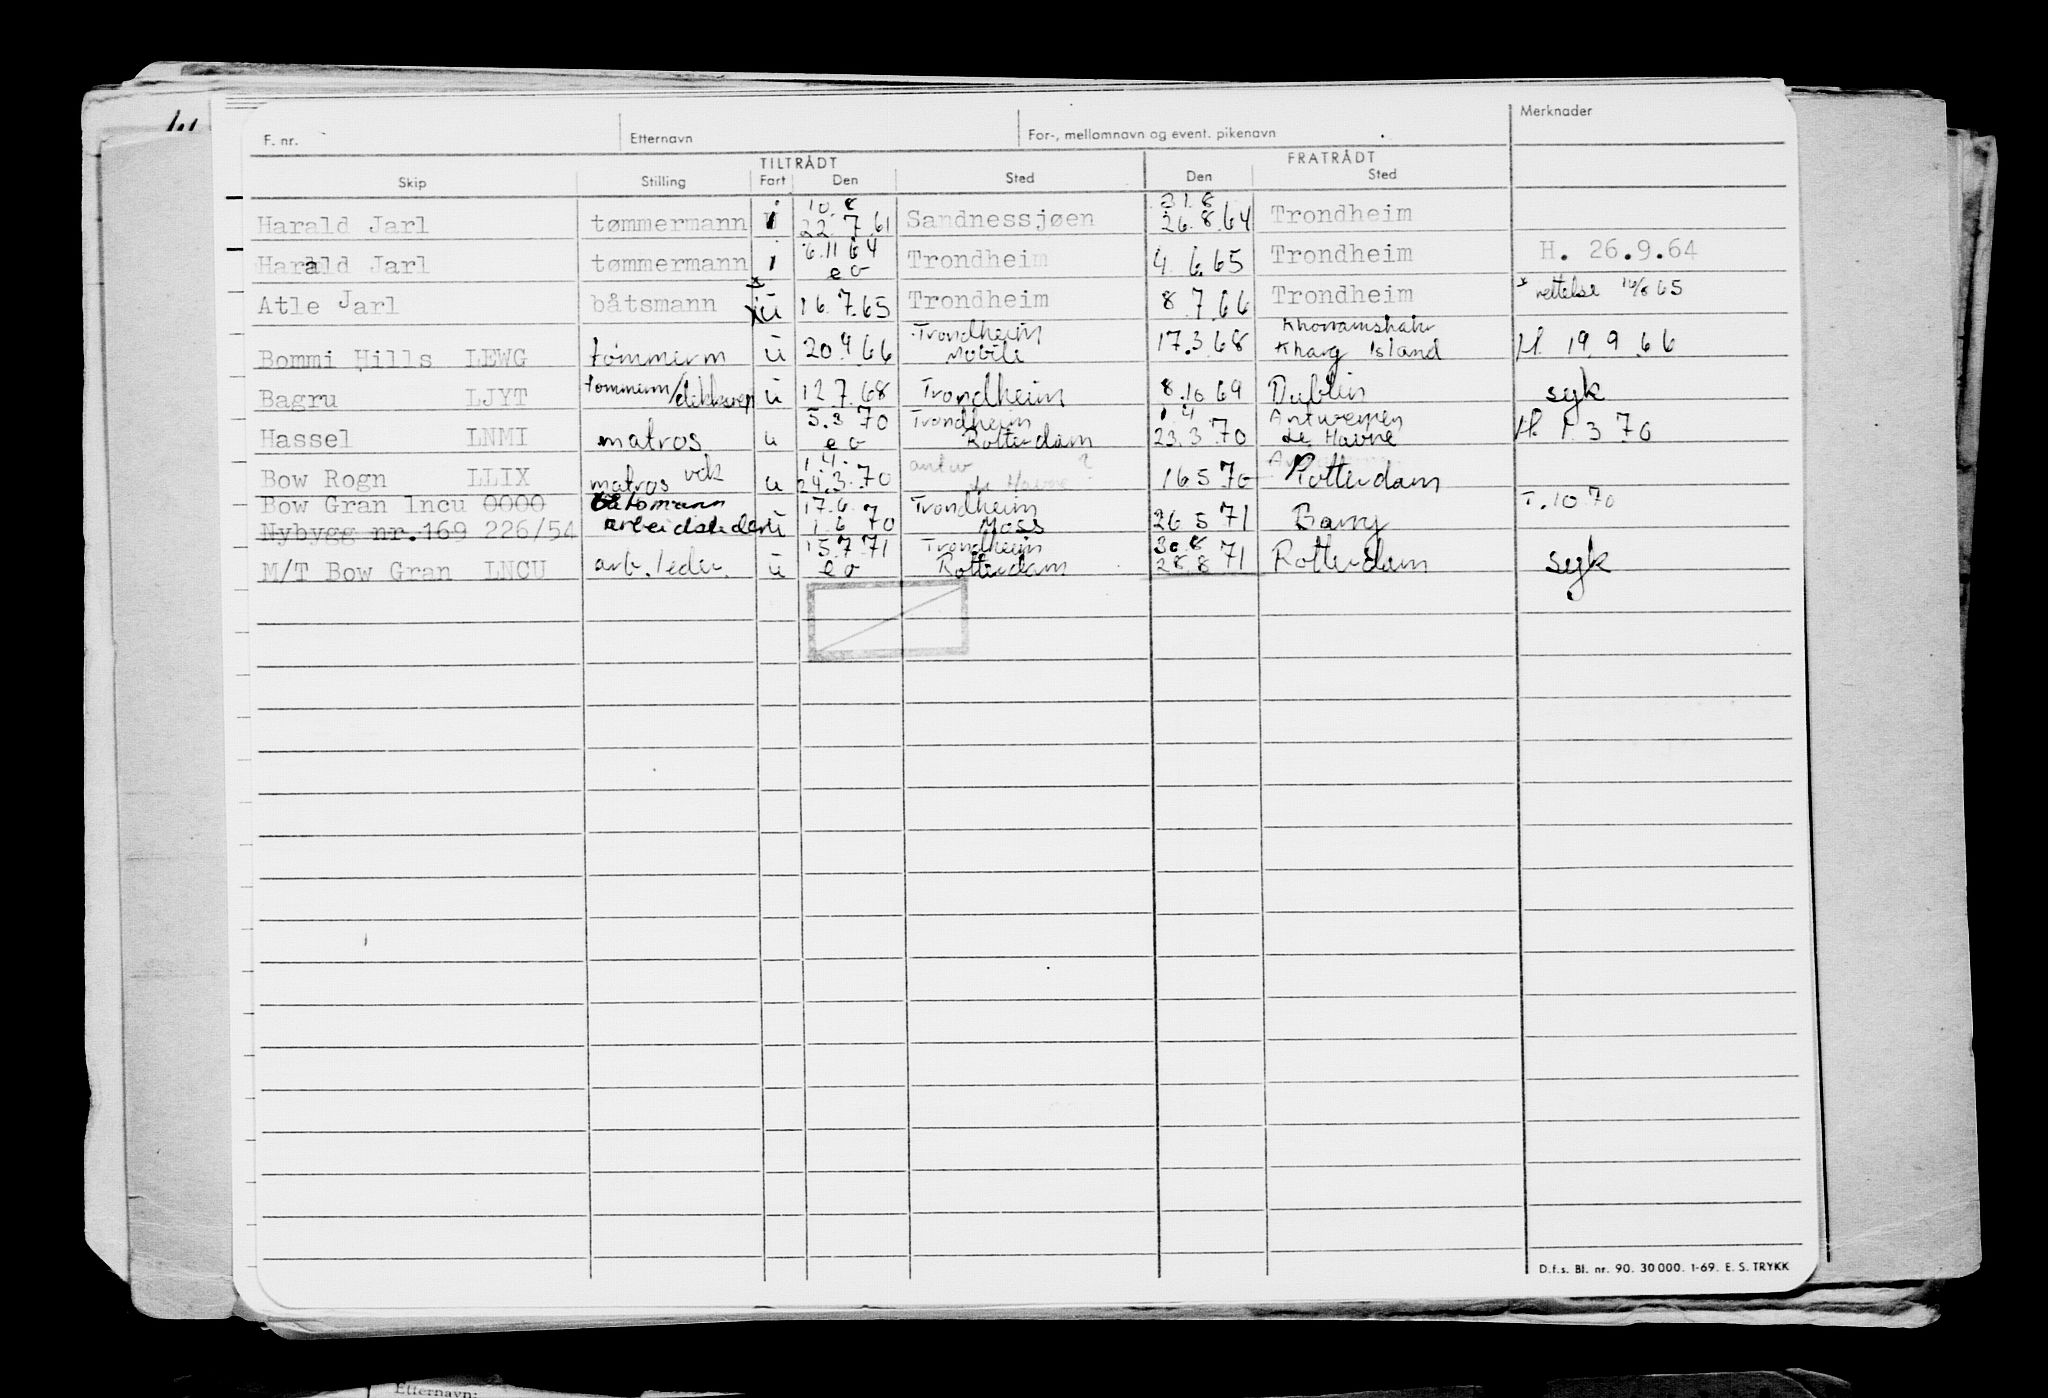 F. nr. Etternavn For-, mellomnavn og event. pikenavn Merknader
TILTRÅDT FRATRÅDT
Skip Stilling Fart Den Sted Den Sted
10.8 31.8
Harald Jarl tømmermann i 22.7.61 Sandnessjøen 26.8.64 Trondheim
6.11 64
Harald Jarl tømmermann i eo Trondheim 4.6.65 Trondheim H. 26.9.64
Atle Jarl båtsmann xu 16.7.65 Trondheim 8.7.66 Trondheim * rettelse 16/8 65
Trondheim Khorramshahr
Bommi Hills LEWG tømmerm u 20 9 66 Mobile 17.3.68 Kharg Island H. 19 9 66
Bagru LJYT tømmerm/ u 12.7.68 Trondheim 8.10.69 Dublin syk
5.3 70 Trondheim 1 4 Antwerpen
Hassel LNMI matros u eo Rotterdam 23.3.70 Le Havre H. 1 3 70
1.4. antw ?
Bow Rogn LLIX matros vek u 24.3.70 Le Havre 16 5 70 Rotterdam
Bow Gran lncu 0000 båtsmann 17.6. Trondheim T.10 70
Nybygg nr.169 226/54 arbeidsleder u 1.6 70 Moss 26 5 71 Barry
15.7.71 Trondheim 30.8
M/T Bow Gran LNCU arb.leder. u eo Rotterdam 28.8 71 Rotterdam syk
D.f.s. Bl. nr. 90. 30 000. 1-69. E. S. TRYKK
Etternavn: